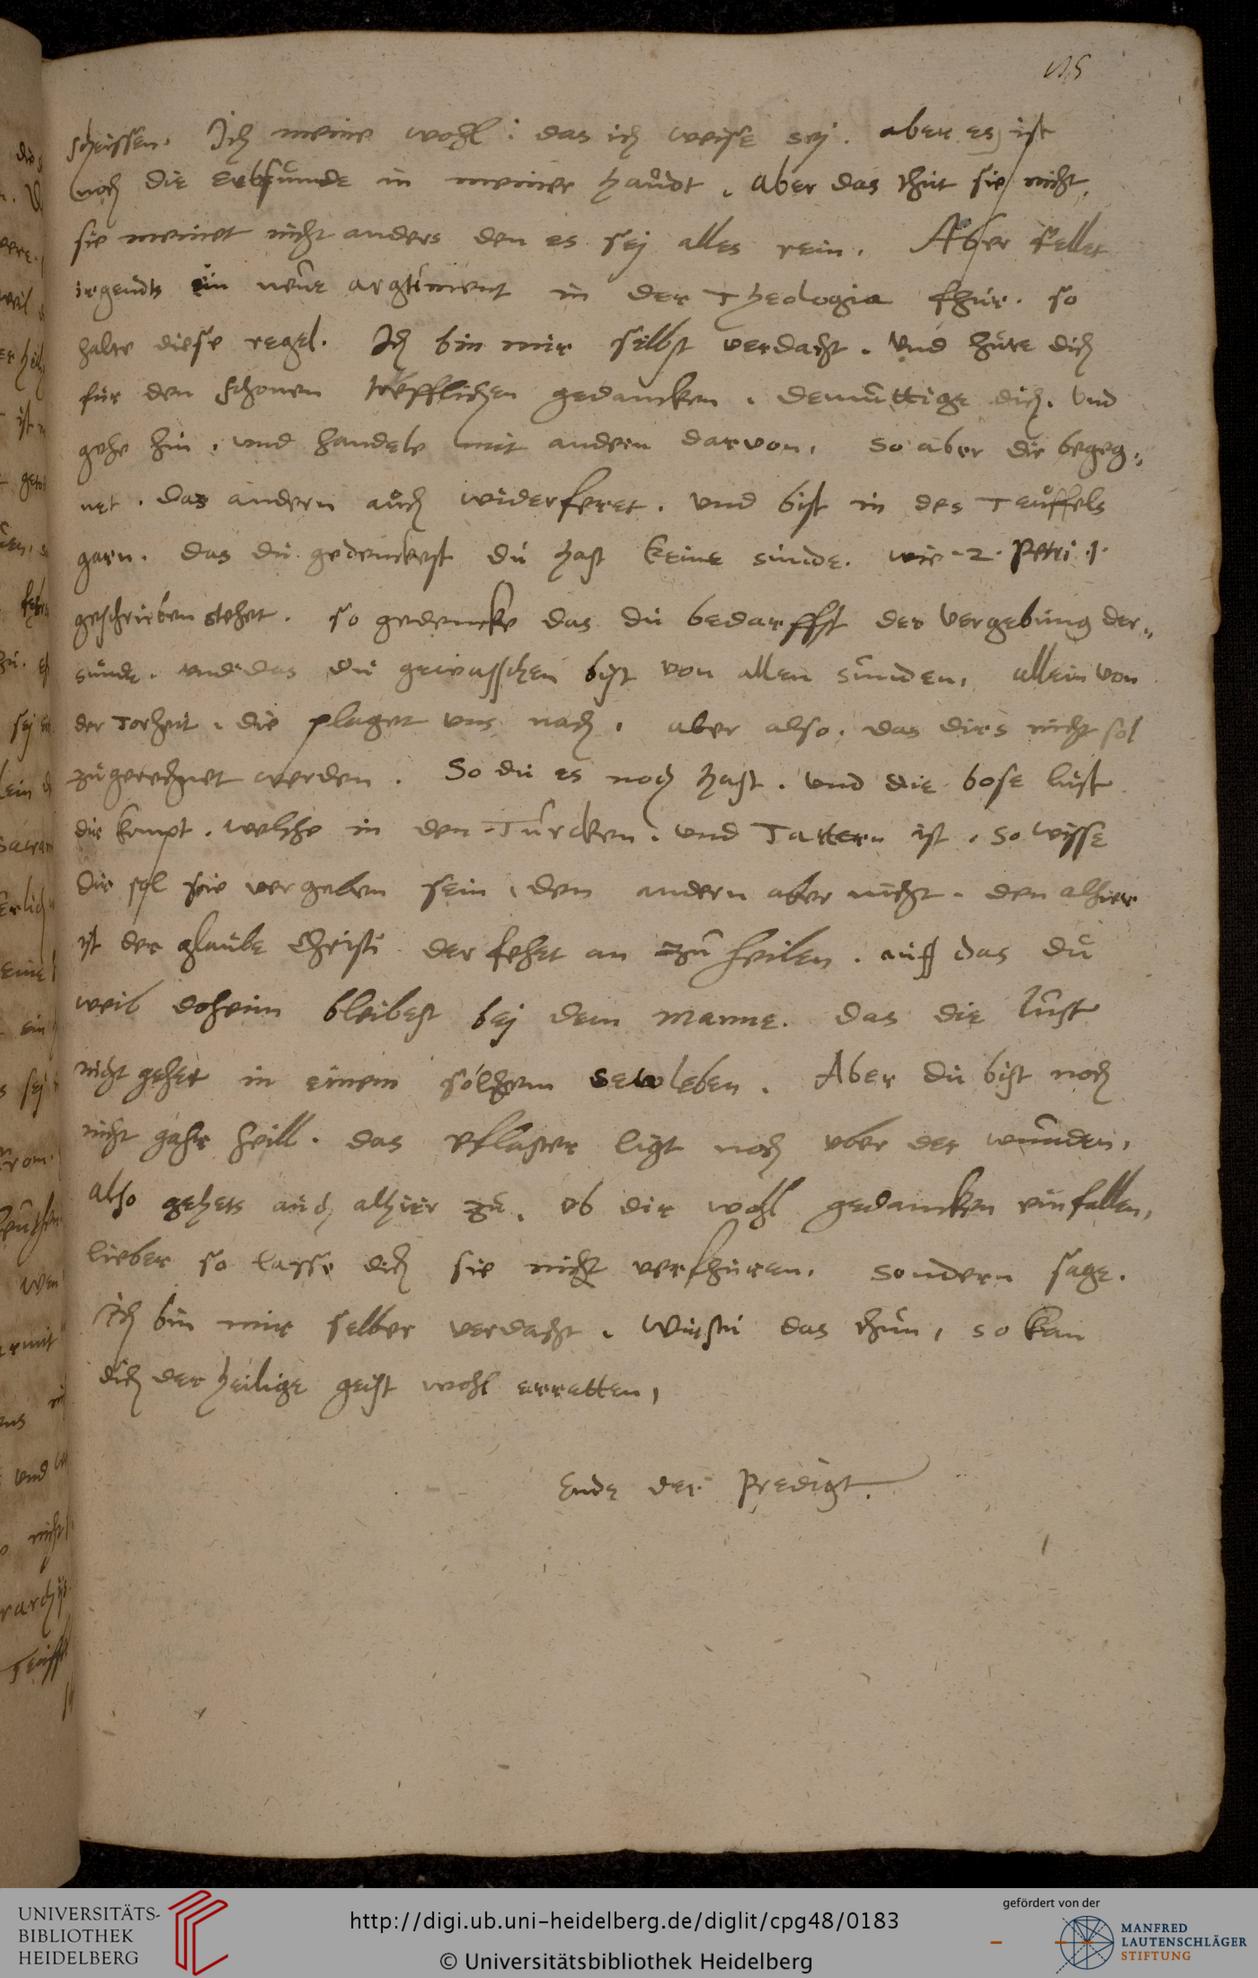 115
scheissen. Ich meine wohl: das ich weise sej. aber es ist
noch die erbsunde in meiner haudt. aber das thut sie nicht,
sie meinet nicht anders den es sej alles rein. Aber fellet
irgendts ein neue argument in der Theologia fhur. so
halte diese regel. Ich bin mir selbst verdacht. Vnd hute dich
fur den schonen trefflichen gedancken. demuttige dich. vnd
gehe hin. vnd handele mit andern darvon, so aber dir begeg:
net. das andern auch widerferet. vnd bist in des Teuffels
garn. das du gedenckest du hast keine sunde. wie 2. Petri .1.
geschrieben stehet. so gedencke das du bedarffst der vergebung der
sunde. vnd das du gewasschen bist von allen sunden, allein von
der Torheit. die plaget vns noch. aber also. das dirs nicht sol
zugerechnet werden. So du es noch hast. vnd die bose lust
dir kompt. welche in den Turcken. vnd Tattern ist. so wisse
dir sol sie vergeben sein. den andern aber nicht. den alhier
ist der glaube Christi der fehet an zu heilen. auff das du
weib doheim bleibest bej dem manne. das die lust
nicht gehet in einem solchem sewleben. Aber du bist noch
nicht gahr heill. das pflaster ligt noch vber der wunden,
also gehets auch alhier zu. ob dir wohl gedancken einfallen,
lieber so lasse dich sie nicht verfhuren. sondern sage.
Ich bin mir selber verdacht. Wirstu das thun, so kan
dich der heilige geist wohl erretten,
Ende der Predigt.
UNIVERSITÄTS-
BIBLIOTHEK
HEIDELBERG
http://digi.ub.uni-heidelberg.de/diglit/cpg48/0183
© Universitätsbibliothek Heidelberg
gefördert von der
MANFRED
LAUTENSCHLÄGER
STIFTUNG